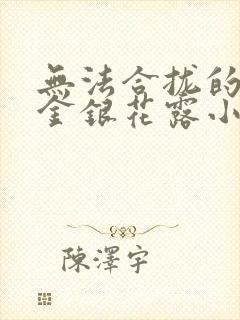 無法合拢的
金銀花露小
陳澤宇